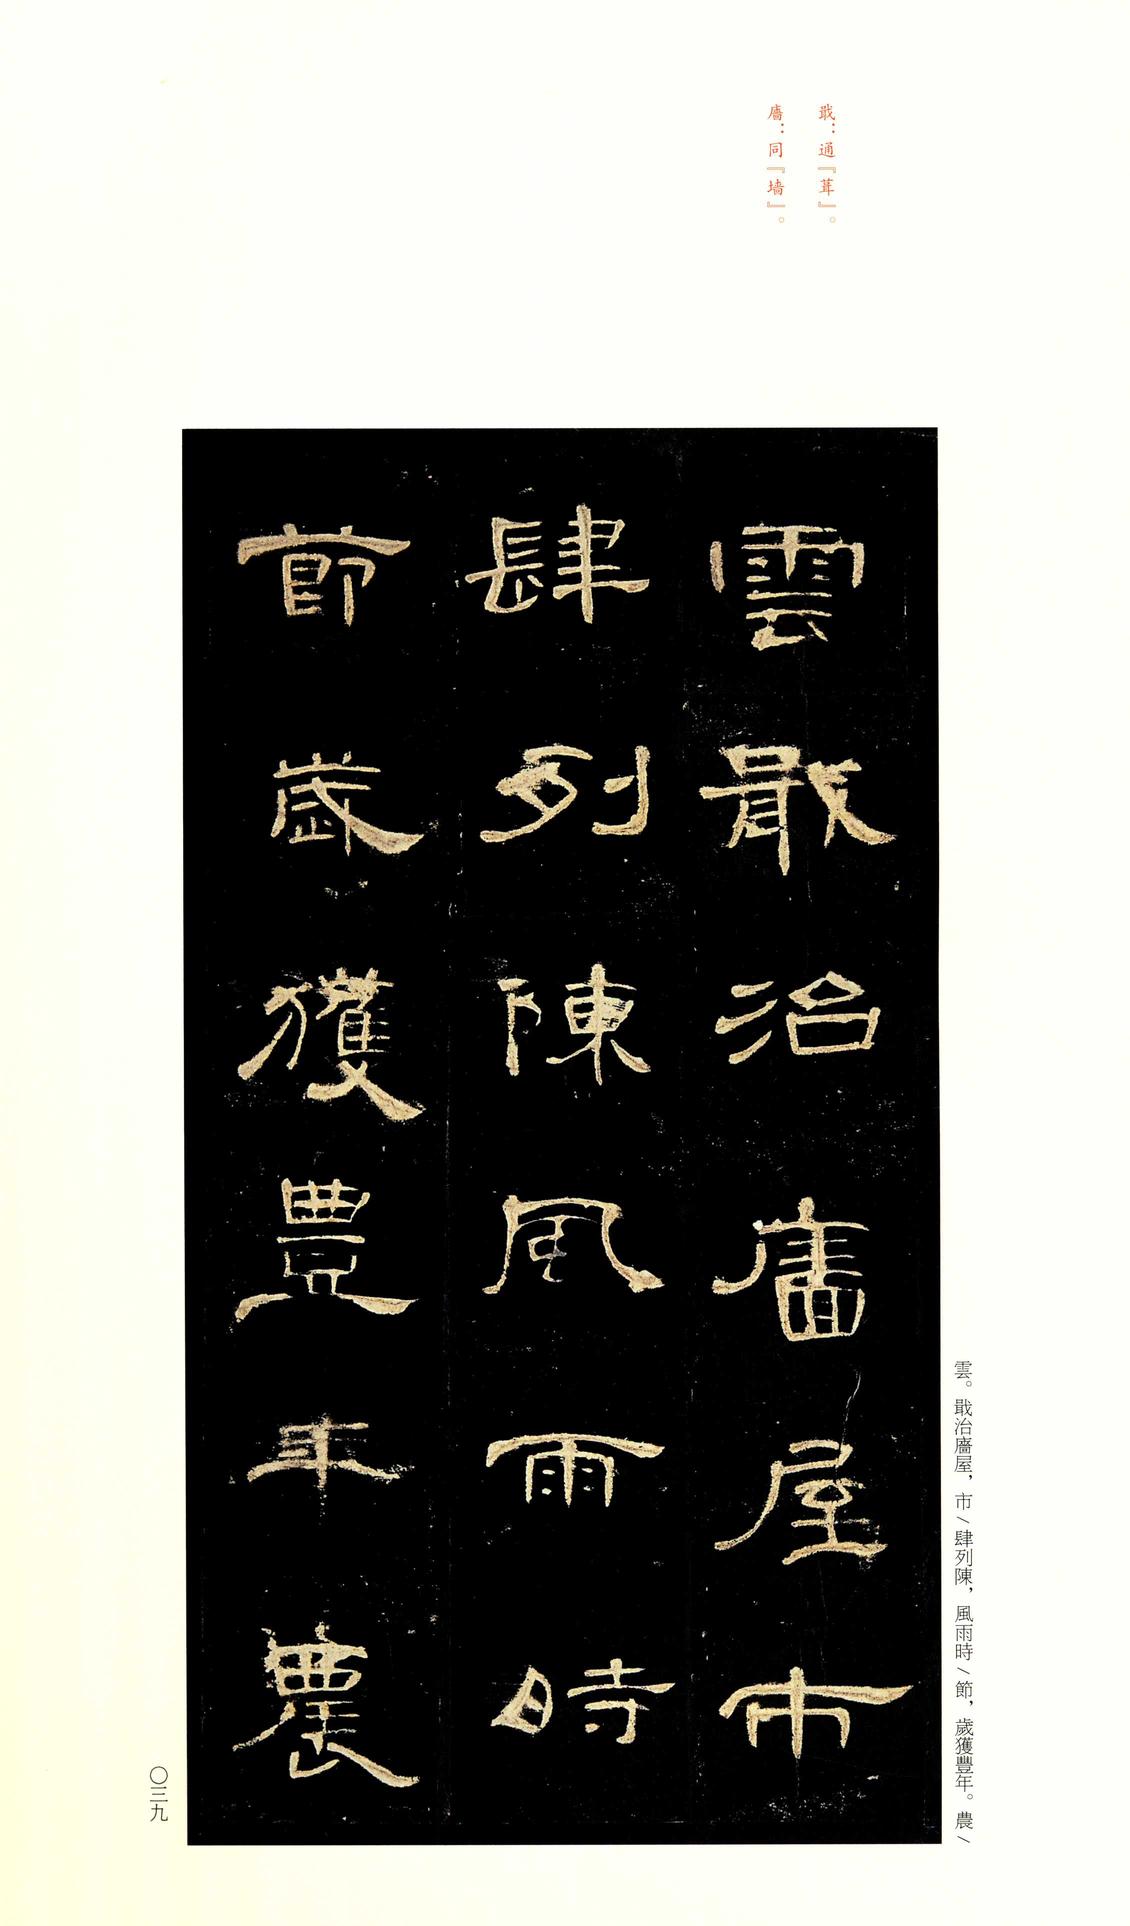 戢：通『葺』。
廧：同『墙』。
雲戢治廧屋市
肆列陳風雨時
節歲獲豐年農
雲。戢治廧屋，市／肆列陳，風雨時／節，歲獲豐年。農／
〇三九